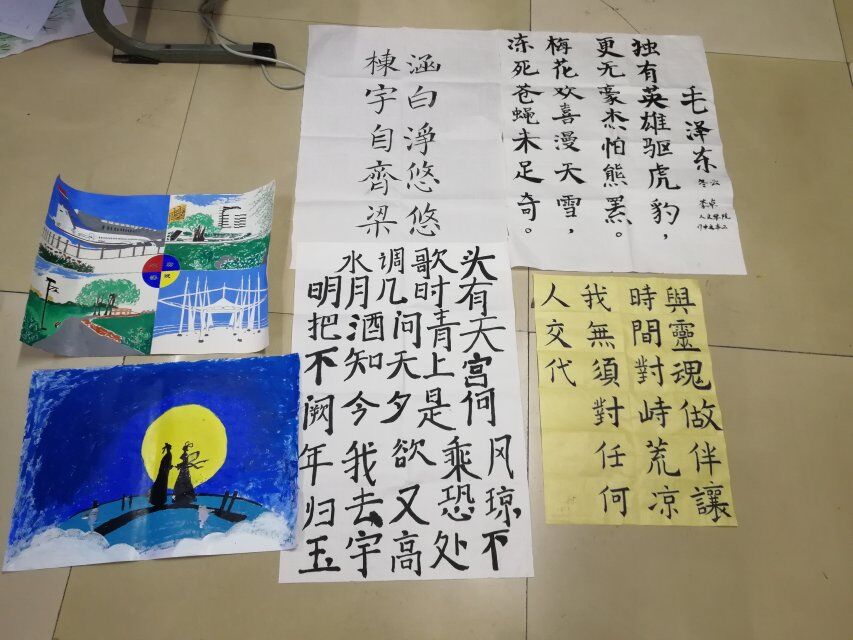 涵白淨悠悠
棟宇自齊梁
毛泽东
冬云
独有英雄驱虎豹，
更无豪杰怕熊罴。
梅花欢喜漫天雪，
冻死苍蝇未足奇。
水调歌头
明月几时有
把酒问青天
不知天上宫
阙今夕是何
年我欲乘风
归去又恐琼
玉宇高处不
與靈魂做伴讓
時間對峙荒凉
我無須對任何
人交代